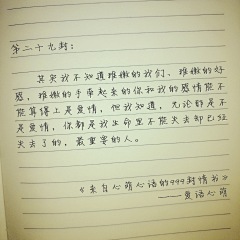 第二十九封：
其实我不知道稚嫩的我们，稚嫩的好
感，稚嫩的手牵起来的你和我的感情能不
能算得上是爱情，但我知道，无论都是不
是爱情，你都是我生命里不能失去却已经
失去了的，最重要的人。
《来自心萌心语的999封情书》
——夏语心萌